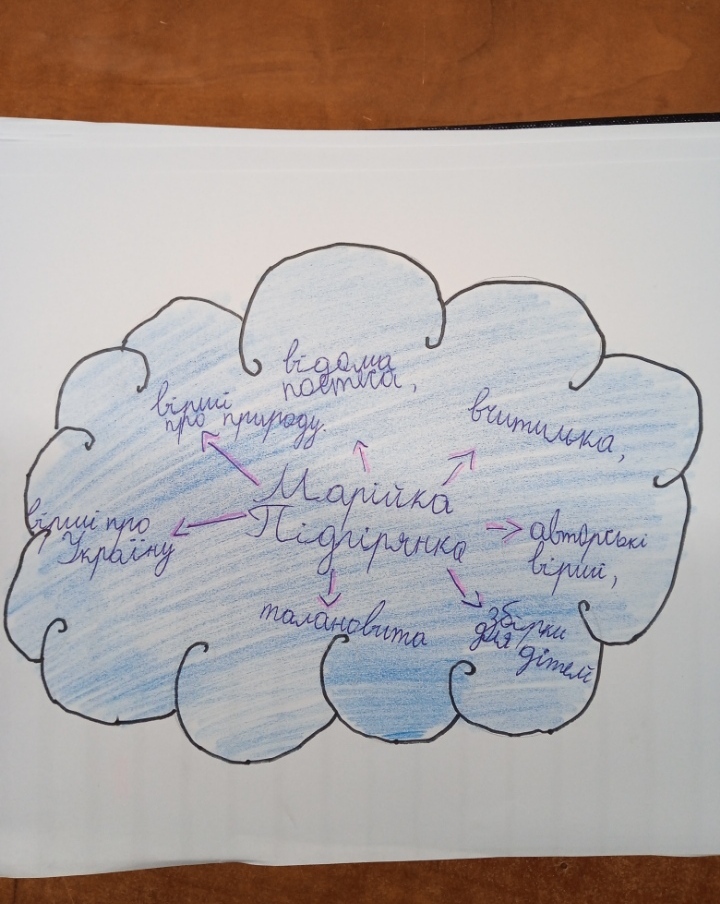 відома
поетеса,
вірші
про природу.
вчителька,
Марійка
Підгірянка
вірші про
Україну
авторські
вірші,
талановита
збірки
для
дітей